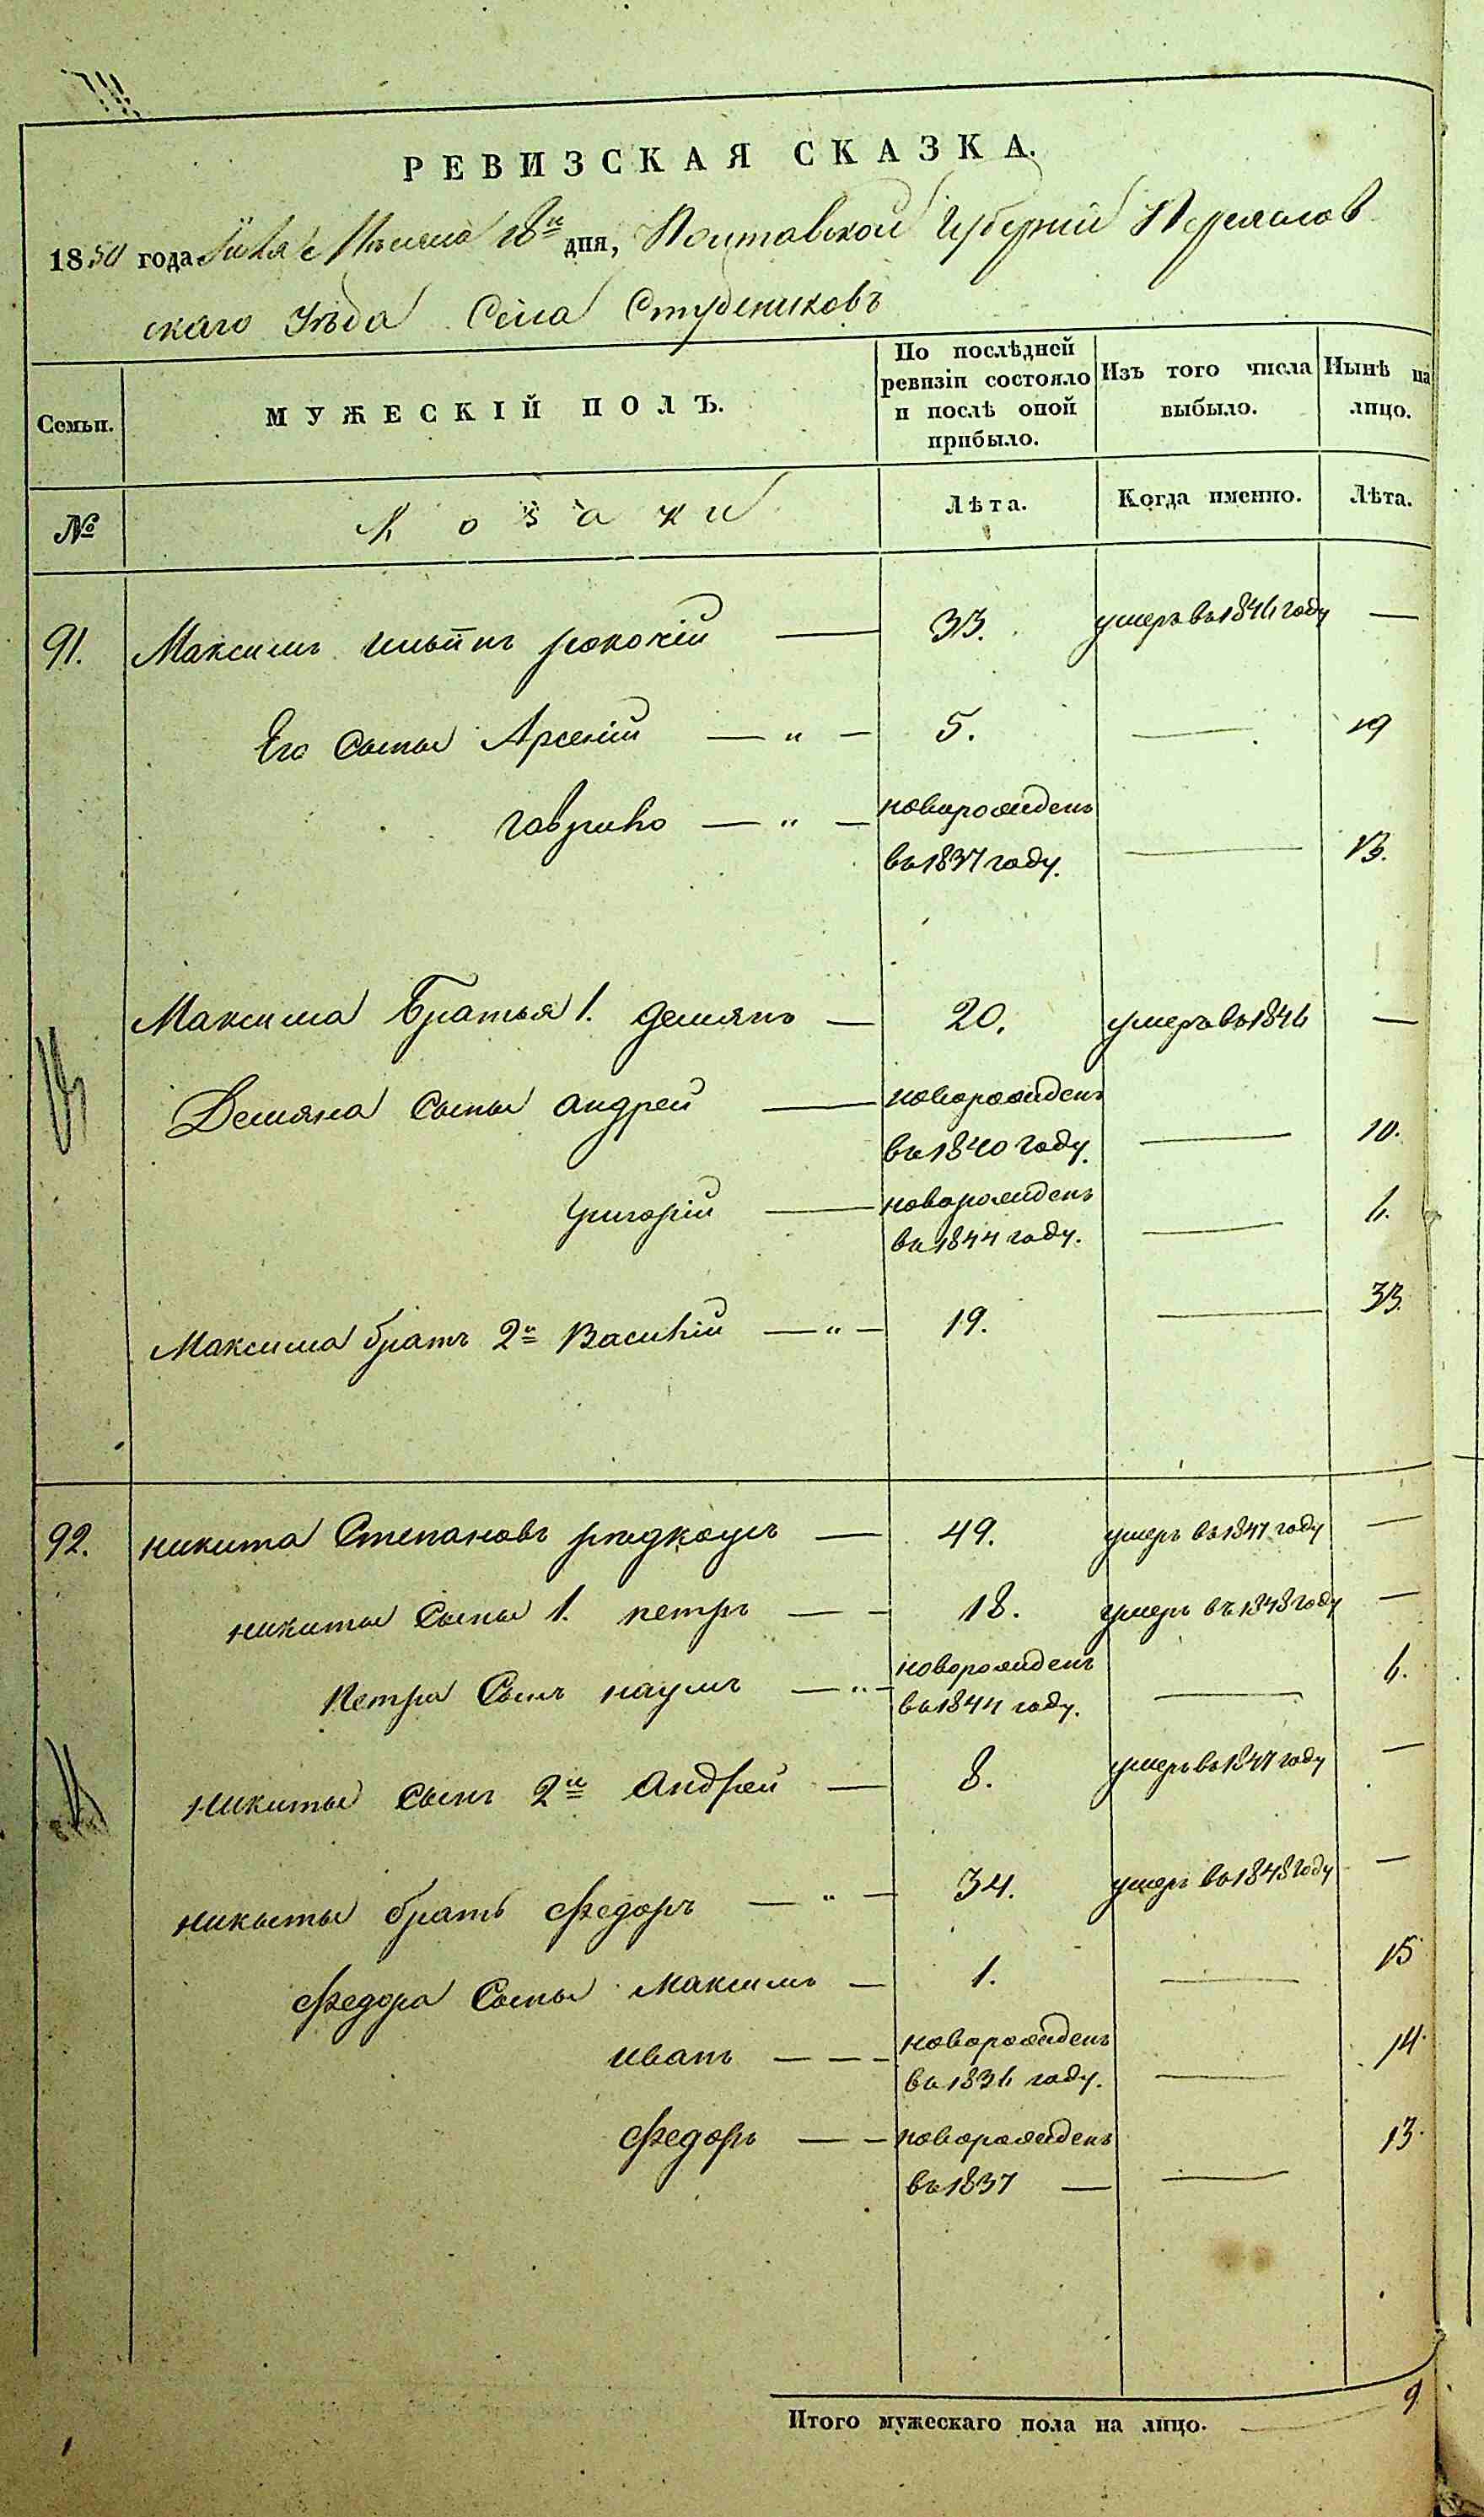 РЕВИЗСКАЯ СКАЗКА.
1850 года Июля Месяца 18го дня, Полтавской Губерніи Переяслов
скаго Уѣзда Села Студениковъ
Семьи.
МУЖЕСКІЙ ПОЛЪ.
По послѣдней ревизіи состояло и послѣ оной прибыло.
Изъ того числа выбыло.
Нынѣ на лицо.
№ Козаки Лѣта. Когда именно. Лѣта.
91. Максимъ Ильинъ рокочій — 33. умеръ въ 1846 году —
Его Сыны Арсеній — " — 5. — 19
Гаврило — " — новорожденъ
въ 1837 году. — 13.
Максима Братья 1. Демянъ — 20. умеръ въ 1846 —
Демяна Сыны андрей — новорожденъ
въ 1840 году. — 10.
Григорій — новорожденъ
въ 1844 году. — 6.
Максима братъ 2й Василій — " — 19. — 33.
92. никита Степановъ — 49. умеръ въ 1847 году —
никиты Сыны 1. петръ — — 18. умеръ въ 1848 году —
Петра Сынъ наумъ — " — новорожденъ
въ 1844 году. — 6.
никиты Сынъ 2й Андрей — 8. умеръ въ 1847 году —
никиты братъ Федоръ — " — 34. умеръ въ 1848 году —
Федора Сыны Максимъ — 1. — 15
иванъ — — — новорожденъ
въ 1836 году. — 14.
Федоръ — — новорожденъ
въ 1837 — — 13.
Итого мужескаго пола на лицо. — 9